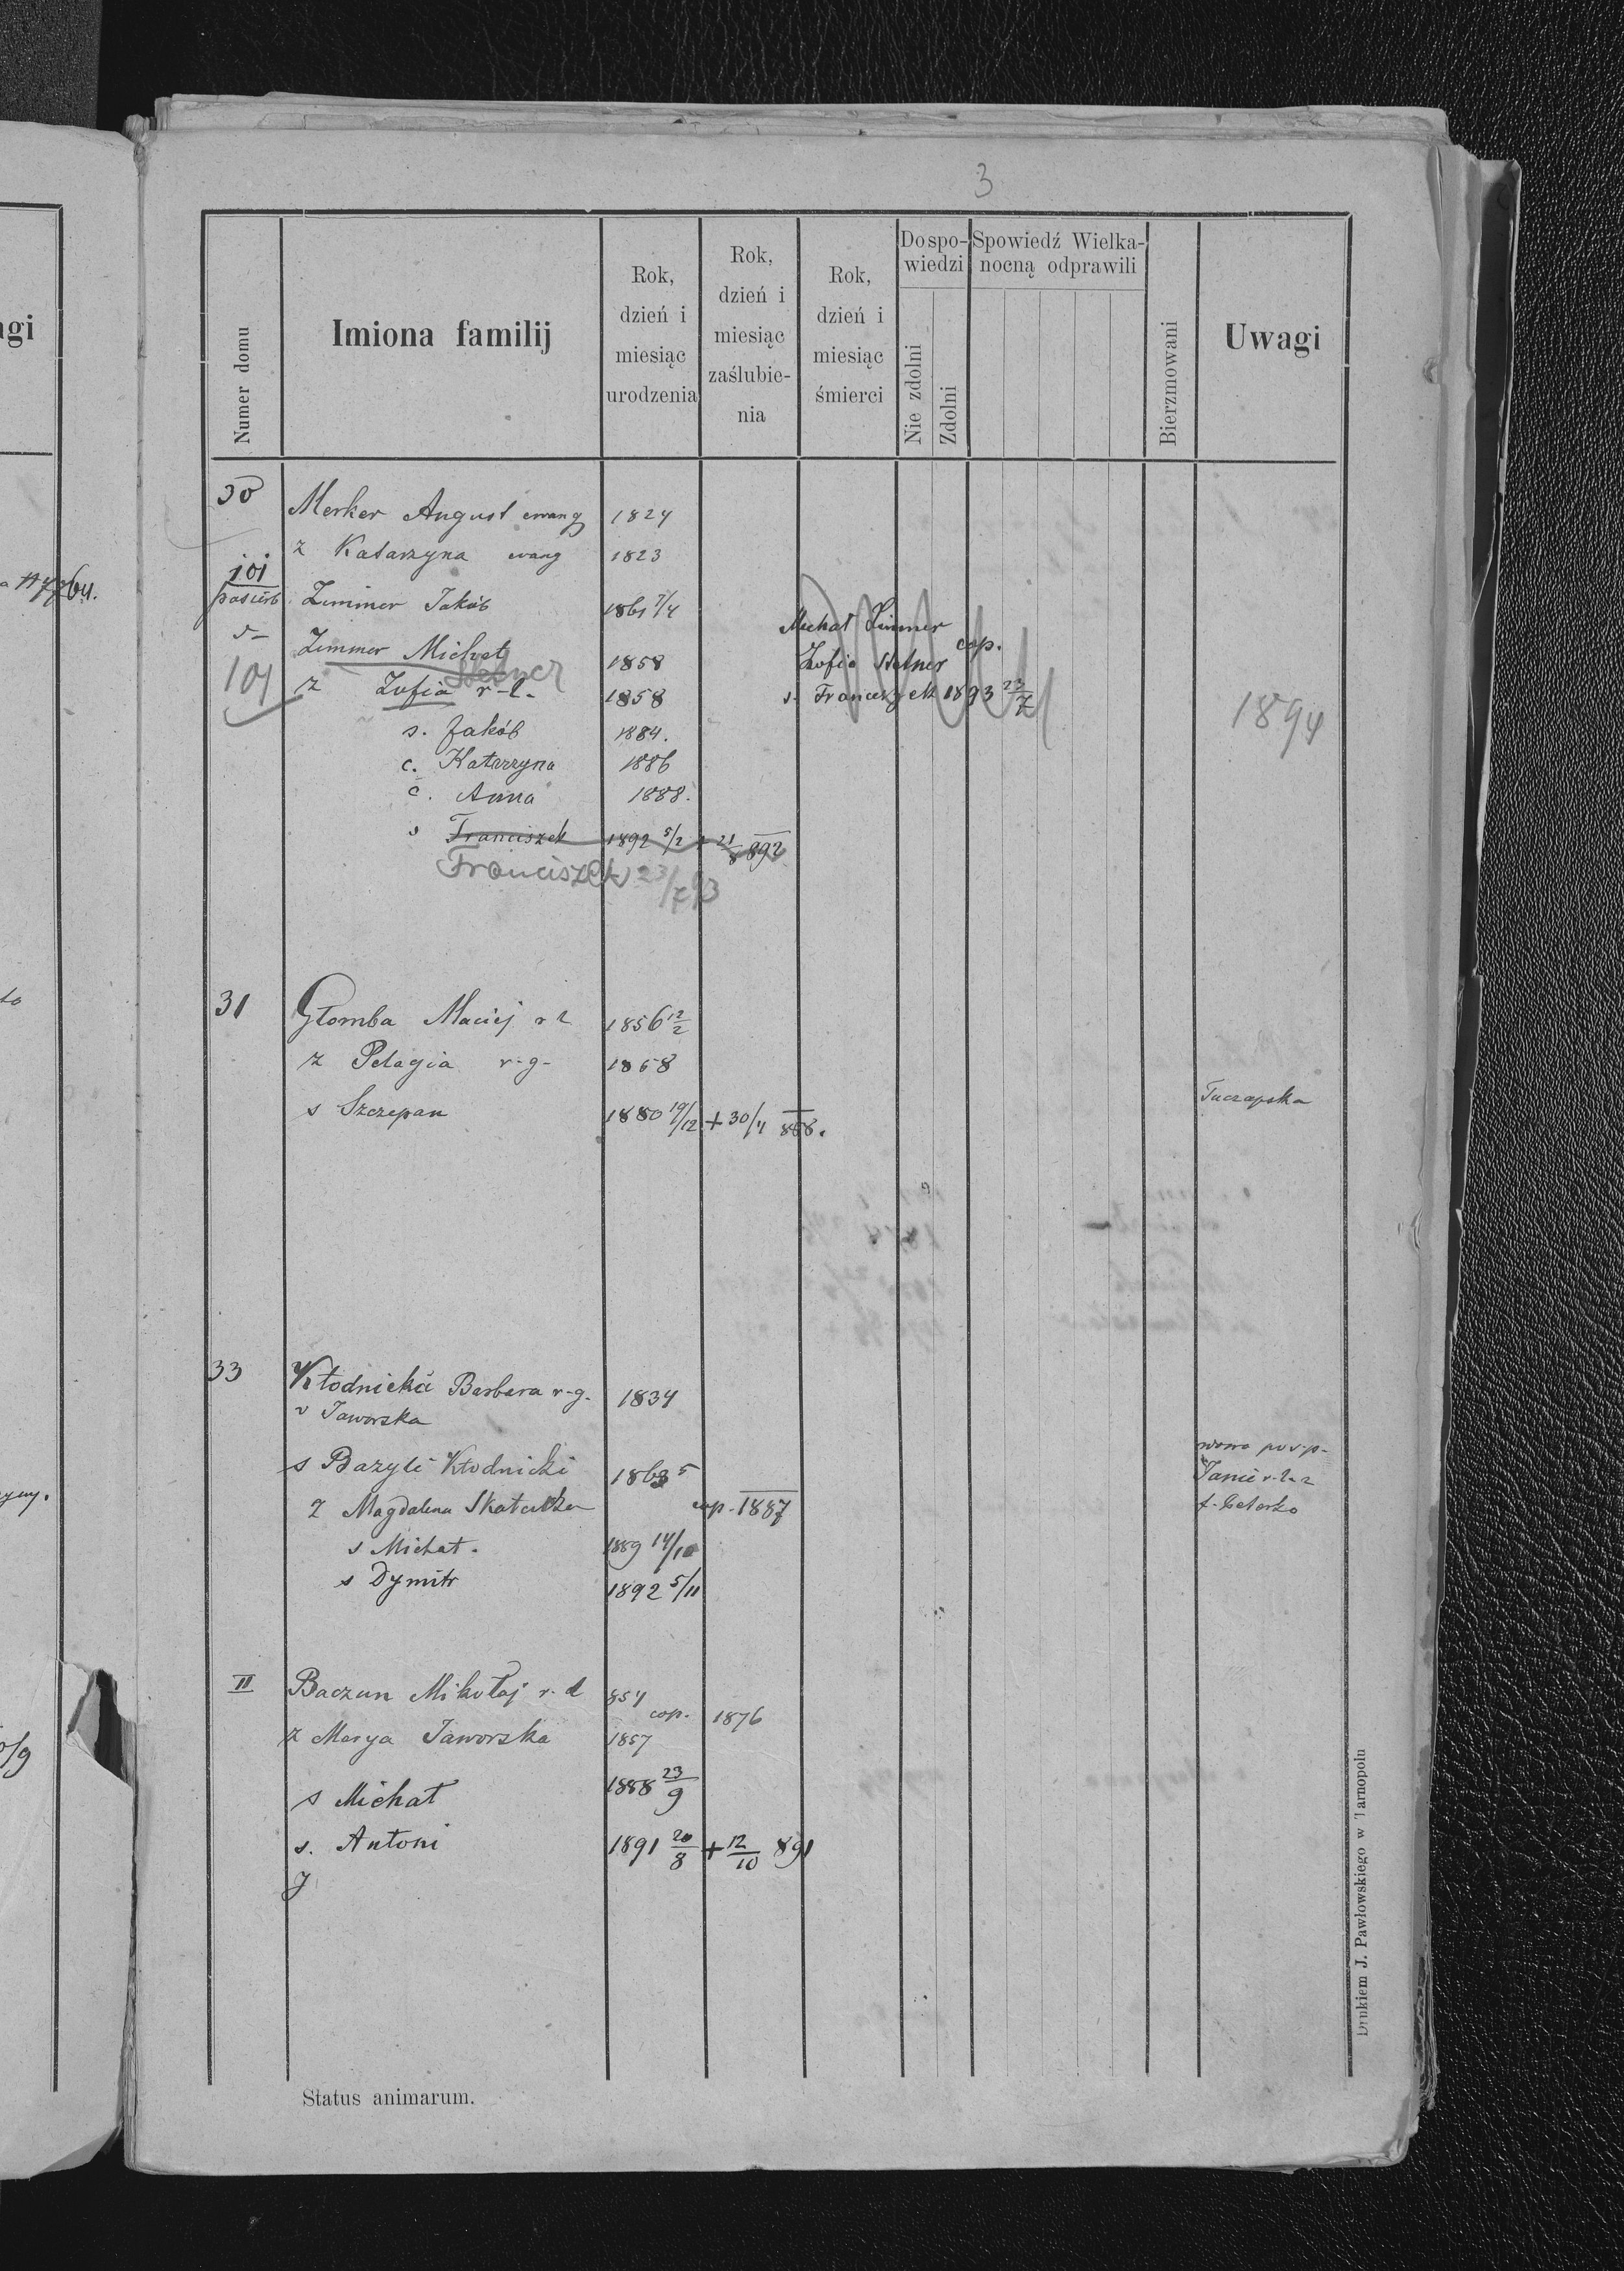 3
Numer domu
Imiona familij
Rok, dzień i miesiąc urodzenia
Rok, dzień i miesiąc zaślubie-nia
Rok, dzień i miesiąc śmierci
Do spo-wiedzi
Nie zdolni
Zdolni
Spowiedź Wielka-nocną odprawili
Bierzmowani
Uwagi
30 Merker August ewang 1824
z Katarzyna ewang 1823
101
pasierb Zimmer Jakób 1861 7/4
Zimmer Michał 1858
Stelner
101 z Zofia r-l- 1858
s. Jakób 1884.
c. Katarzyna 1886
c. Anna 1888.
s Franciszek 1892 5/2 + 21/8 892
Franciszek 23/7 93
Michał Zimmer
cop.
Zofia Stelner
s. Franciszek 1893 23/7
1894
31 Głomba Maciej r l 1856 12/2
z Pelagia r-g- 1858
s Szczepan 1880 19/12 + 30/4 888.
Tuczapska
33 Kłodnicka Barbara r-g. 1834
v Jaworska
s Bazyli Kłodnicki 1863 5
z Magdalena cop. 1887
s Michał. 1889 14/10
s Dymitr 1892 5/11
II Baczun Mikołaj r. d 854
cop. 1876
z Marya Jaworska 1857
s Michał 1888 23/9
s. Antoni 1891 20/8 + 12/10 891
Status animarum.
Drukiem J. Pawłowskiego w Tarnopolu